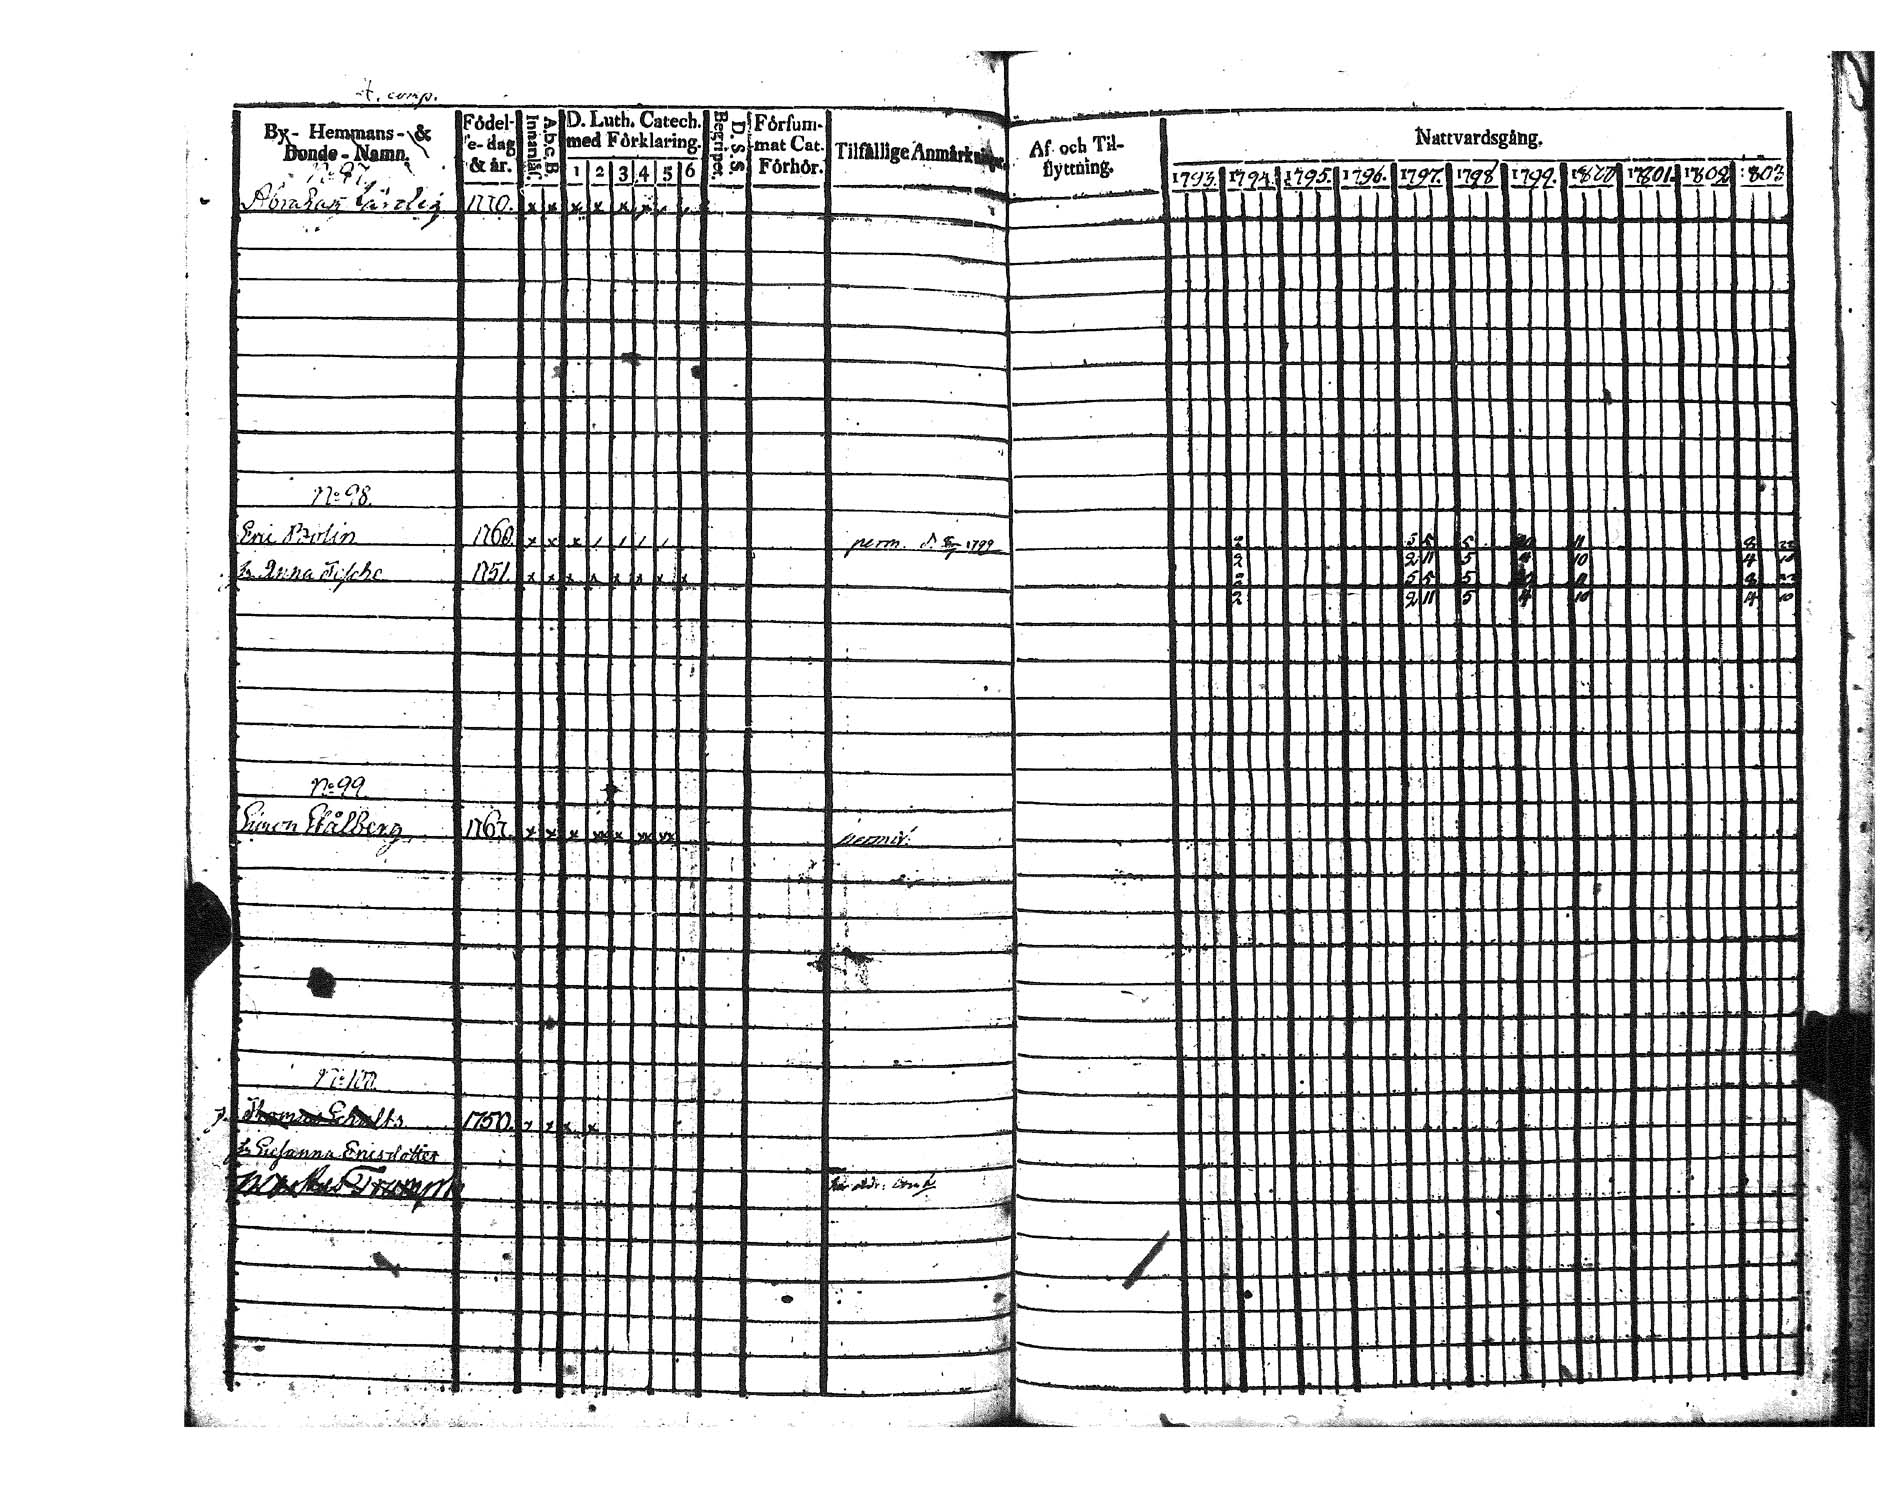 comp.
By- Hemmans- & Bonde- Namn.
Födel- e- dag & år.
Innanläs.
A.b.c.B
D. Luth. Catech. med Förklaring.
1 2 3 4 5 6
D. S. S. Begriper.
Försum- mat Cat. Förhör.
Tilfällige Anmärkningar
Af och Til- flyttning.
Nattvardsgång.
1793. 1794. 1795. 1796. 1797. 1798 1799. 1800 1801. 1802 1803
No 97.
Abraham 1770. x x x x x
No 98.
Eric Brolin 1760. x x x / / / / perm. d. 1799
2 5 5 5 11 8
2 2 11 5 4 10 4 10
h. Anna 1751. x x x x x x x x
2 5 5 5 11 8
2 2 11 5 4 10 4 10
No 99.
Simon Stålberg 1767. x x x xx x xx xx
No 100.
Thomas Schults 1750. x x x x
h. Susanna Ericsdotter